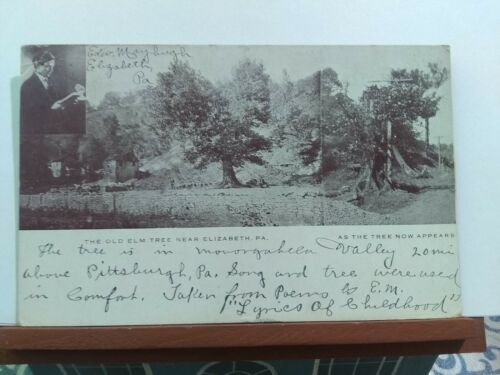 Exer Mayhugh
Elizabeth,
Pa
THE OLD ELM TREE NEAR ELIZABETH, PA.
AS THE TREE NOW APPEARS
The tree is in monongahela Valley 20mi
above Pittsburgh, Pa. Song and tree were used
in Comfort. Taken from Poems by E.M.
"Lyrics Of Childhood"